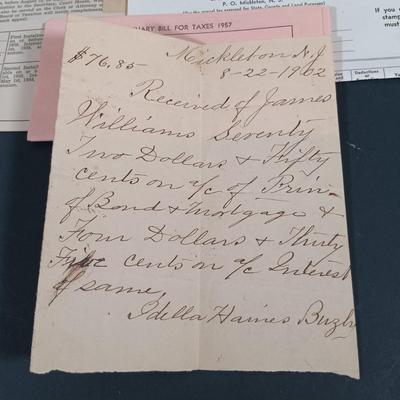 P. O. MICKLETON, N. J.
ARY BILL FOR TAXES 1957
$76.85
Mickleton N.J
8-22-1902
Received of James
Williams Seventy
Two Dollars & Fifty
cents on a/c of Prin-
of Bond & Mortgage &
Four Dollars & Thirty
Five cents on a/c Interest
of same,
Idella Haines Buzby